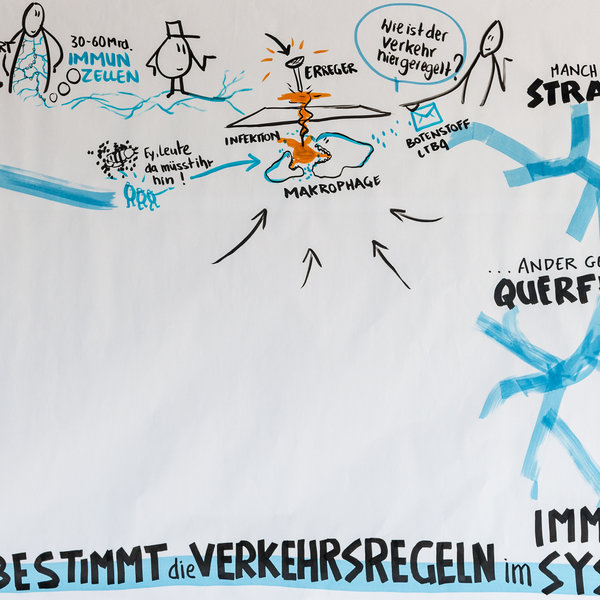 RT
30-60 Mrd.
IMMUN
ZELLEN
ERREGER
Wie ist der
Verkehr
hier geregelt?
MANCH
STRA
INFEKTION
BOTENSTOFF
LTB4
Ey, Leute
da müsst ihr
hin!
MAKROPHAGE
... ANDER GE
QUERF
IMM
BESTIMMT die VERKEHRSREGELN im SYS